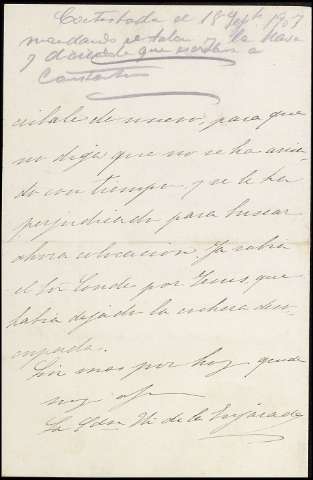 Contestada el 18 Sept 1907
mandando el talon y la llave
y diciendo que escriban a
Constantino
cibale de nuevo, para que
no diga que no se ha avisa
do con tiempo y se le ha
perjudicado para buscar
ahora colocacion. Ya sabra
el Sr Conde por Jesus, que
habia dejado la cochera deso
cupada.
Sin mas por hoy queda
muy afma
La Cdsa Vda de la Enjarada